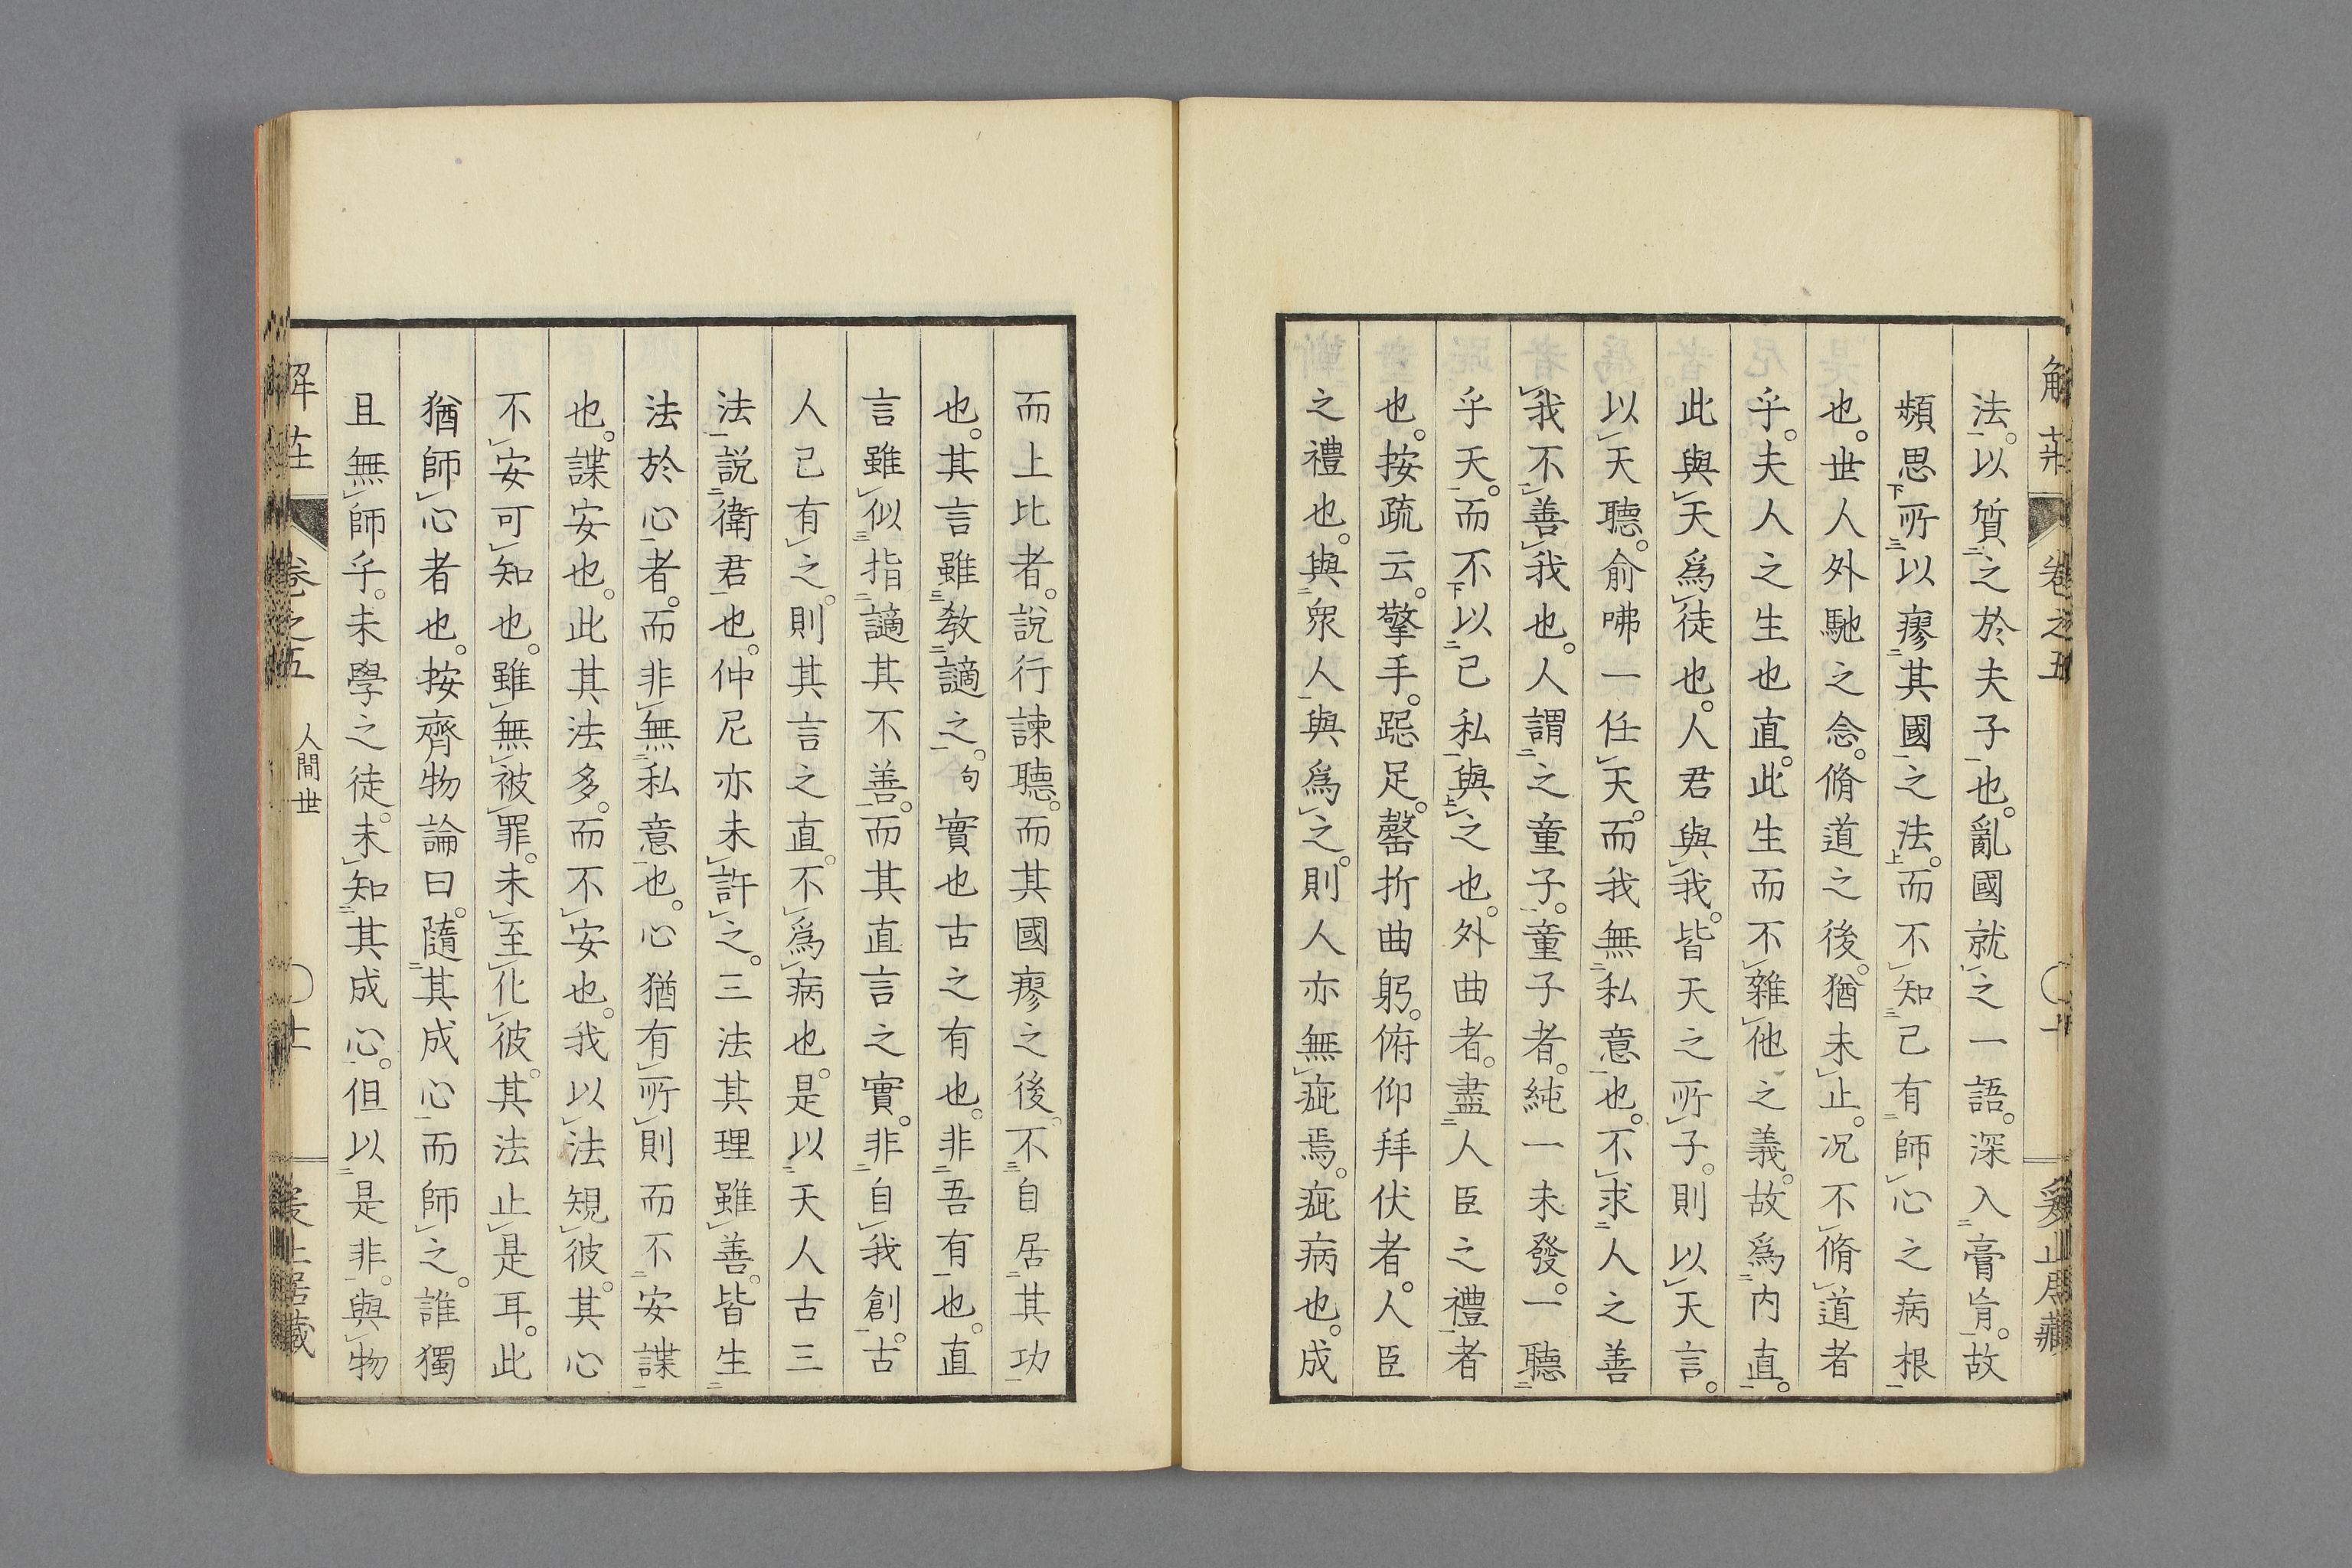 解莊 卷之五 〇十 爰止居藏
法。以質之於夫子也。亂國就之一語。深入膏肓。故
頻思所以瘳其國之法。而不知己有師心之病根
也。世人外馳之念。脩道之後。猶未止。况不脩道者
乎。夫人之生也直。此生而不雜他之義。故爲內直。
此與天爲徒也。人君與我。皆天之所子。則以天言。
以天聽。俞咈一任天。而我無私意也。不求人之善
我不善我也。人謂之童子。童子者。純一未發。一聽
乎天。而不以己私與之也。外曲者。盡人臣之禮者
也。按疏云。擎手。跽足。罄折曲躬。俯仰拜伏者。人臣
之禮也。與衆人與爲之。則人亦無疵焉。疵病也。成
而上比者。說行諫聽。而其國瘳之後。不自居其功
也。其言雖教謫之。句實也古之有也。非吾有也。直
言雖似指謫其不善。而其直言之實。非自我創。古
人已有之。則其言之直。不爲病也。是以天人古三
法說衛君也。仲尼亦未許之。三法其理雖善。皆生
法於心者。而非無私意也。心猶有所則而不安諜
也。諜安也。此其法多。而不安也。我以法規彼。其心
不安可知也。雖無被罪。未至化彼。其法止是耳。此
猶師心者也。按齊物論曰。隨其成心而師之。誰獨
且無師乎。未學之徒。未知其成心。但以是非。與物
解莊 卷之五 人間世 〇十一 爰止居藏